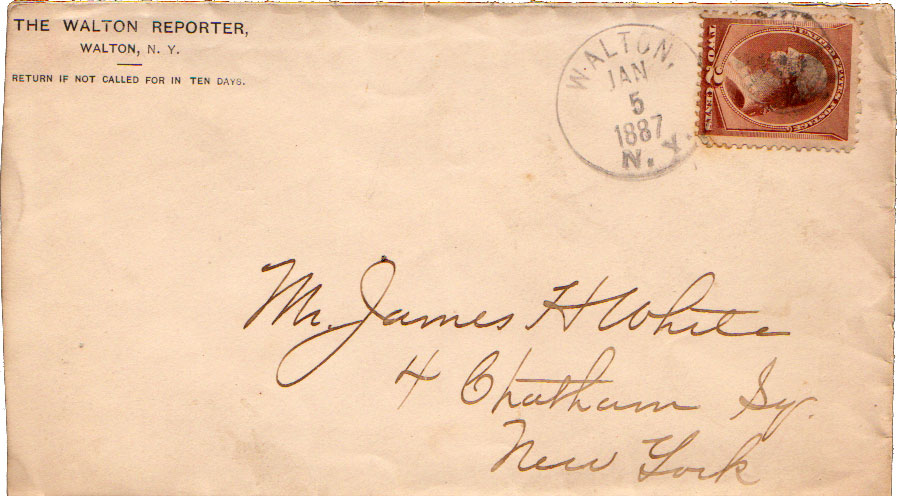 THE WALTON REPORTER,
WALTON, N. Y.
RETURN IF NOT CALLED FOR IN TEN DAYS.
WALTON,
JAN
5
1887
N. Y.
UNITED STATES POSTAGE
TWO 2 CENTS
Mr. James H White
4 Chatham Sq.
New York